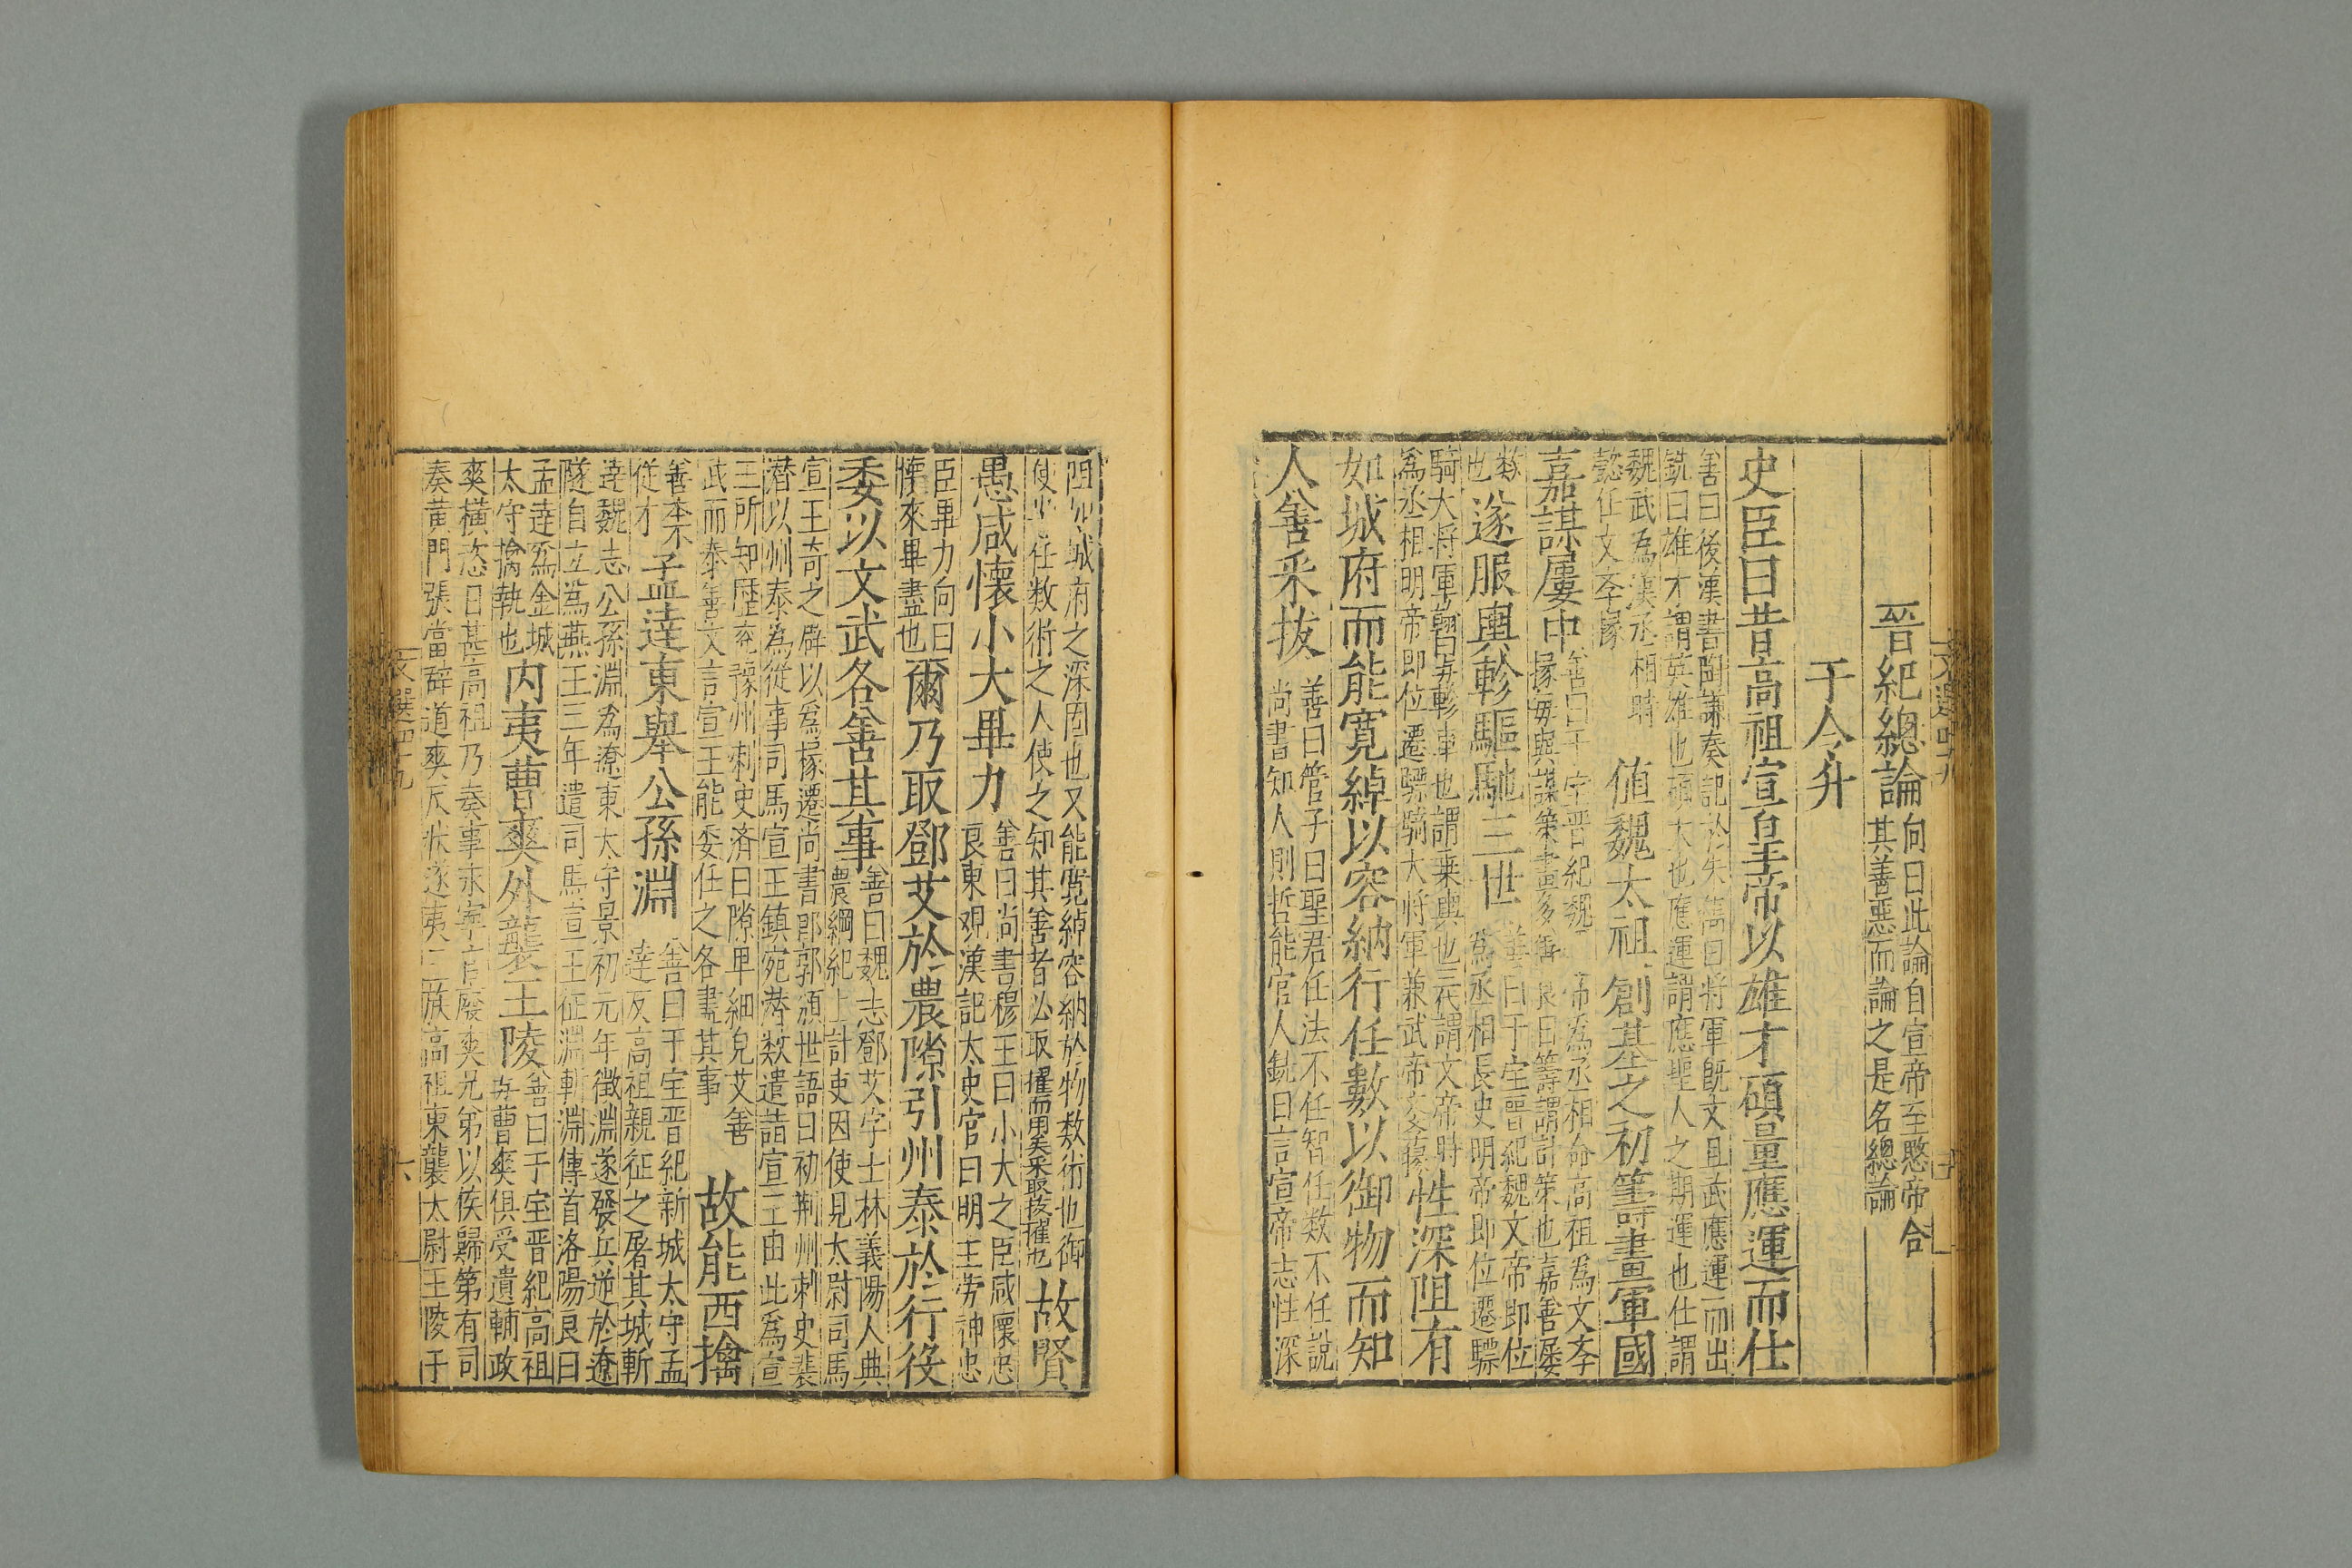 晉紀總論向曰此論自宣帝至愍帝合其善惡而論之是名總論
于令升
史臣曰昔高祖宣皇帝以雄才碩量應運而仕
善曰後漢書陶謙奏記於朱儁曰將軍旣文且武應運而出
銑曰雄才謂英雄也碩大也應運謂應聖人之期運也仕謂
魏武為漢丞相時懿任文斈掾値魏太祖創基之初籌畫軍國
嘉謀屢中善曰干寶晉紀魏帝為丞相命高祖為文斈掾每與謀策畫多善良曰籌謂計策也嘉善屢
數也遂服輿軫驅馳三世善曰干寶晉紀魏文帝即位為丞相長史明帝即位遷驃
騎大将軍翰曰輿軫車也謂乗輿也三代謂文帝時
為丞相明帝即位遷驃騎大将軍兼武帝文掾性深阻有
如城府而能寛綽以容納行任數以御物而知
人善采拔善曰管子曰聖君任法不任智任数不任說尚書知人則哲能官人銑曰言宣帝志性深
阻如城府之深固也又能寛綽容納於物数術也御
使也任数術之人使之知其善者必取擢而用矣采取拔擢也故賢
愚咸懷小大畢力善曰尚書穆王曰小大之臣咸懷忠良東觀漢記太史官曰明主勞神忠
臣畢力向曰懷來畢盡也爾乃取鄧艾於農隙引州泰於行役
委以文武各善其事善曰魏志鄧艾字士林義陽人典農綱紀上計吏因使見太尉司馬
宣王奇之辟以為掾遷尚書郎郭頒世語曰初荆州刺史裴
潛以州泰為從事司馬宣王鎮宛潜数遣詣宣王由此為宣
王所知歷兖豫州刺史濟曰隙甲細皃艾善
武而泰善文言宣王能委任之各畫其事故能西擒
孟達東舉公孫淵善曰干宝晉紀新城太守孟達反高祖親征之屠其城斬
達魏志公孫淵為遼東太守景初元年徵淵遂發兵逆於遼
隧自立為燕王三年遣司馬宣王征淵斬淵傳首洛陽良曰
孟達為金城太守擒執也内夷曹爽外襲王陵善曰干宝晉紀高祖與曹爽俱受遺輔政
爽橫恣日甚高祖乃奏事永寧宫廢爽兄弟以侯歸第有司
奏黄門張當辞道爽反狀遂夷三族高祖東襲太尉王陵于